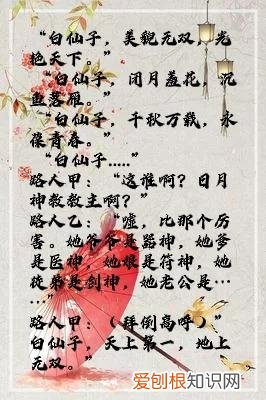 “白仙子，美貌无双，光
艳天下。”
“白仙子，闭月羞花，沉
鱼落雁。”
“白仙子，千秋万载，永
葆青春。”
“白仙子.....”
路人甲：“这谁啊？日月
神教教主啊？”
路人乙：“嘘，比那个厉
害。她爷爷是器神，她爹
是医神，她娘是符神，她
徒弟是剑神，她老公是…
…”
路人甲：（拜倒高呼）”
白仙子，天上第一，地上
无双。”
爱刨根知识网